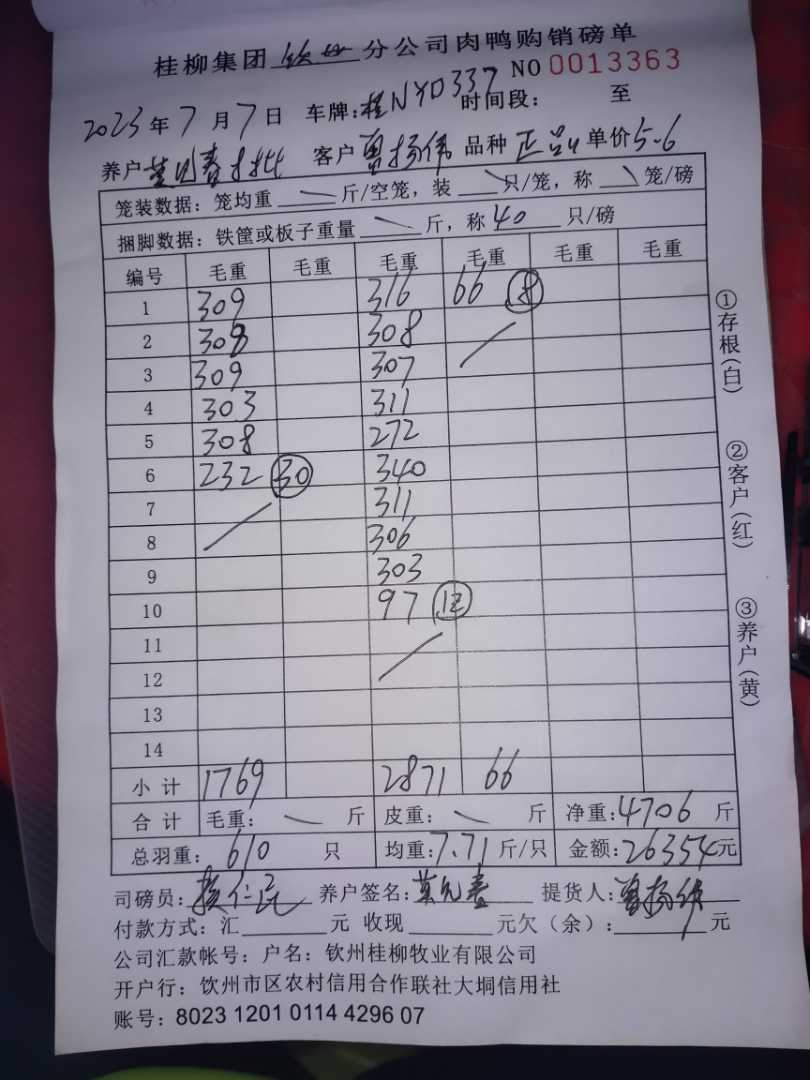 桂柳集团 钦州 分公司肉鸭购销磅单
NO 0013363
2023年7月7日 车牌:桂NY0337 时间段: 至
养户 春 批 客户 曾扬伟 品种 正品 单价 5.6
笼装数据: 笼均重 斤/空笼, 装 只/笼, 称 笼/磅
捆脚数据: 铁筐或板子重量 斤, 称 40 只/磅
编号 毛重 毛重 毛重 毛重 毛重 毛重
1 309 316 66 8
2 308 308
3 309 307
4 303 311
5 308 272
6 232 30 340
7 311
8 306
9 303
10 97 12
11
12
13
14
小计 1769 2871 66
合计 毛重: 斤 皮重: 斤 净重:4706 斤
总羽重: 610 只 均重:7.71 斤/只 金额:26354元
司磅员: 养户签名: 提货人:曾扬伟
付款方式: 汇 元 收现 元欠(余): 元
公司汇款帐号: 户名: 钦州桂柳牧业有限公司
开户行: 钦州市区农村信用合作联社大垌信用社
账号: 8023 1201 0114 4296 07
①存根(白)
②客户(红)
③养户(黄)